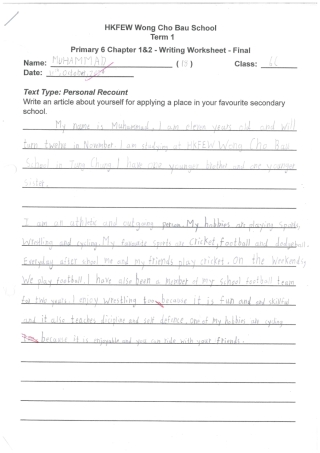 HKFEW Wong Cho Bau School
Term 1
Primary 6 Chapter 1&2 - Writing Worksheet - Final
Name: MUHAMMAD ( 15 ) Class: 6E
Date: October
Text Type: Personal Recount
Write an article about yourself for applying a place in your favourite secondary
school.
My name is Muhammad. I am eleven years old and will
turn twelve in November. I am studying at HKFEW Wong Cho Bau
School in Tung Chung. I have one younger brother and one younger
sister.
I am an athlete and outgoing person. My hobbies are playing sports,
wrestling and cycling. My favourite sports are cricket, football and dodgeball.
Everyday after school me and my friends play cricket. On the weekends
we play football. I have also been a member of my school football team
for two years. I enjoy wrestling too because it is fun and and skillful
and it also teaches discipline and self defence. One of my hobbies are cycling
because it is enjoyable and you can ride with your friends.